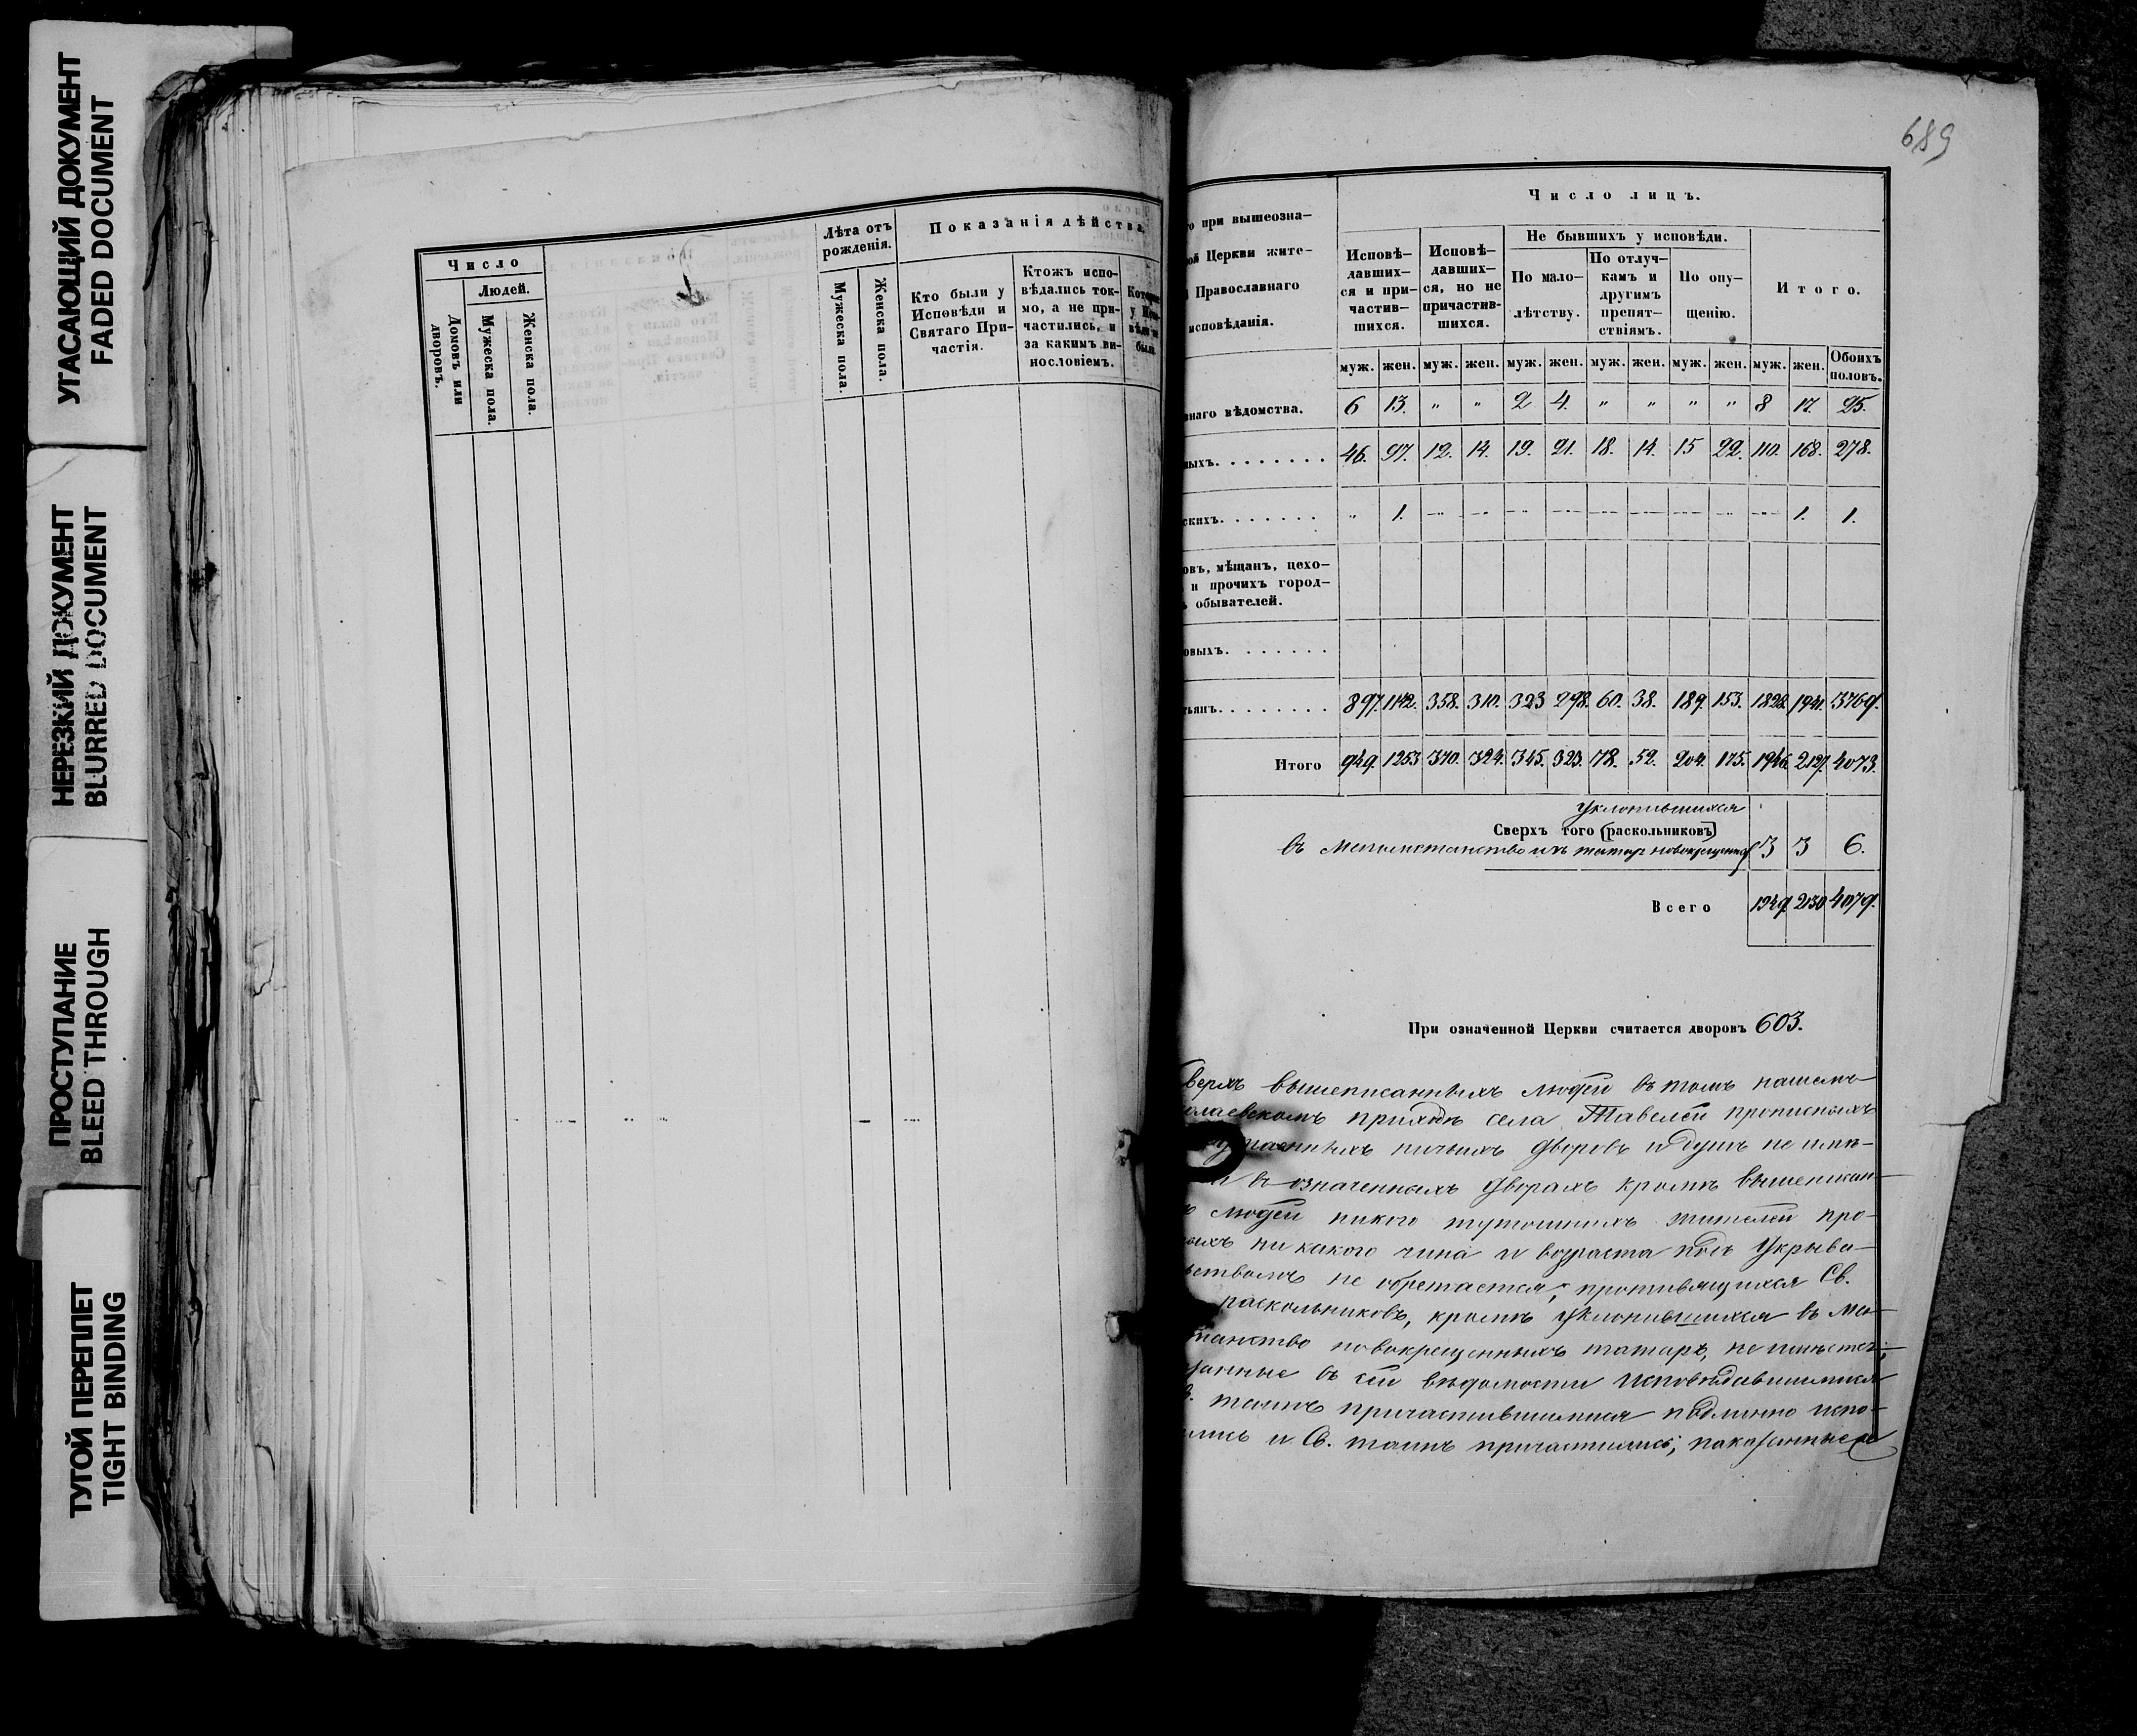 УГАСАЮЩИЙ ДОКУМЕНТ
FADED DOCUMENT
НЕРЕЗКИЙ ДОКУМЕНТ
BLURRED DOCUMENT
ПРОСТУПАНИЕ
BLEED THROUGH
ТУГОЙ ПЕРЕПЛЕТ
TIGHT BINDING
Число
Людей.
Домовъ или дворовъ.
Мужеска пола.
Женска пола.
Лѣта отъ
рожденія.
Мужеска пола.
Женска пола.
Показанія дѣйства.
Кто были у
Исповѣди и
Святаго При-
частія.
Ктожъ испо-
вѣдались ток-
мо, а не при-
частились, и
за какимъ ви-
нословіемъ.
689
при вышеозна-
Церкви жите-
Православнаго
исповѣданія.
Число лицъ.
Исповѣ-
давших-
ся и при-
частив-
шихся.
Исповѣ-
давших-
ся, но не
причастив-
шихся.
Не бывшихъ у исповѣди.
По мало-
лѣтству.
По отлуч-
камъ и
другимъ
препят-
ствіямъ.
По опу-
щенію.
Итого.
муж. жен. муж. жен. муж. жен. муж. жен. муж. жен. муж. жен. Обоихъ половъ.
вѣдомства. 6 13. " " 2 4. " " " " 8 17. 25.
ныхъ. 46. 97. 12. 14. 19. 21. 18. 14. 15 22. 110. 168. 278.
скихъ. " 1. 1. 1.
овъ, мѣщанъ, цехо-
и прочихъ город-
обывателей.
овыхъ.
тьянъ. 897. 1142. 358. 310. 323 298. 60. 38. 189. 153. 1828. 1941. 3769.
Итого 949. 1253 370. 324. 345. 323. 78. 52. 204. 175. 1946. 2127. 4073.
уклонившихся
Сверхъ того (раскольниковъ)
въ изъ татар новокрещенных 3 3 6.
Всего 1949. 2130 4079.
При означенной Церкви считается дворовъ 603.
верхъ вышеписанныхъ людей въ томъ нашемъ
олаевскомъ приходѣ села Тавелей прописныхъ
ничьихъ дворовъ и душъ не имѣ-
въ означенныхъ дворахъ кромѣ вышеписан-
людей никого тутошнихъ жителей про-
ни какого чина и возраста подъ укрыва-
не обретается; противящихся Св.
раскольниковъ, кромѣ уклонившихся въ Ма-
новокрещенныхъ татаръ, не имѣется;
въ сей вѣдомости исповѣдавшимися
таинъ причастившимися подлинно испо-
и Св. таинъ причастились; показанные